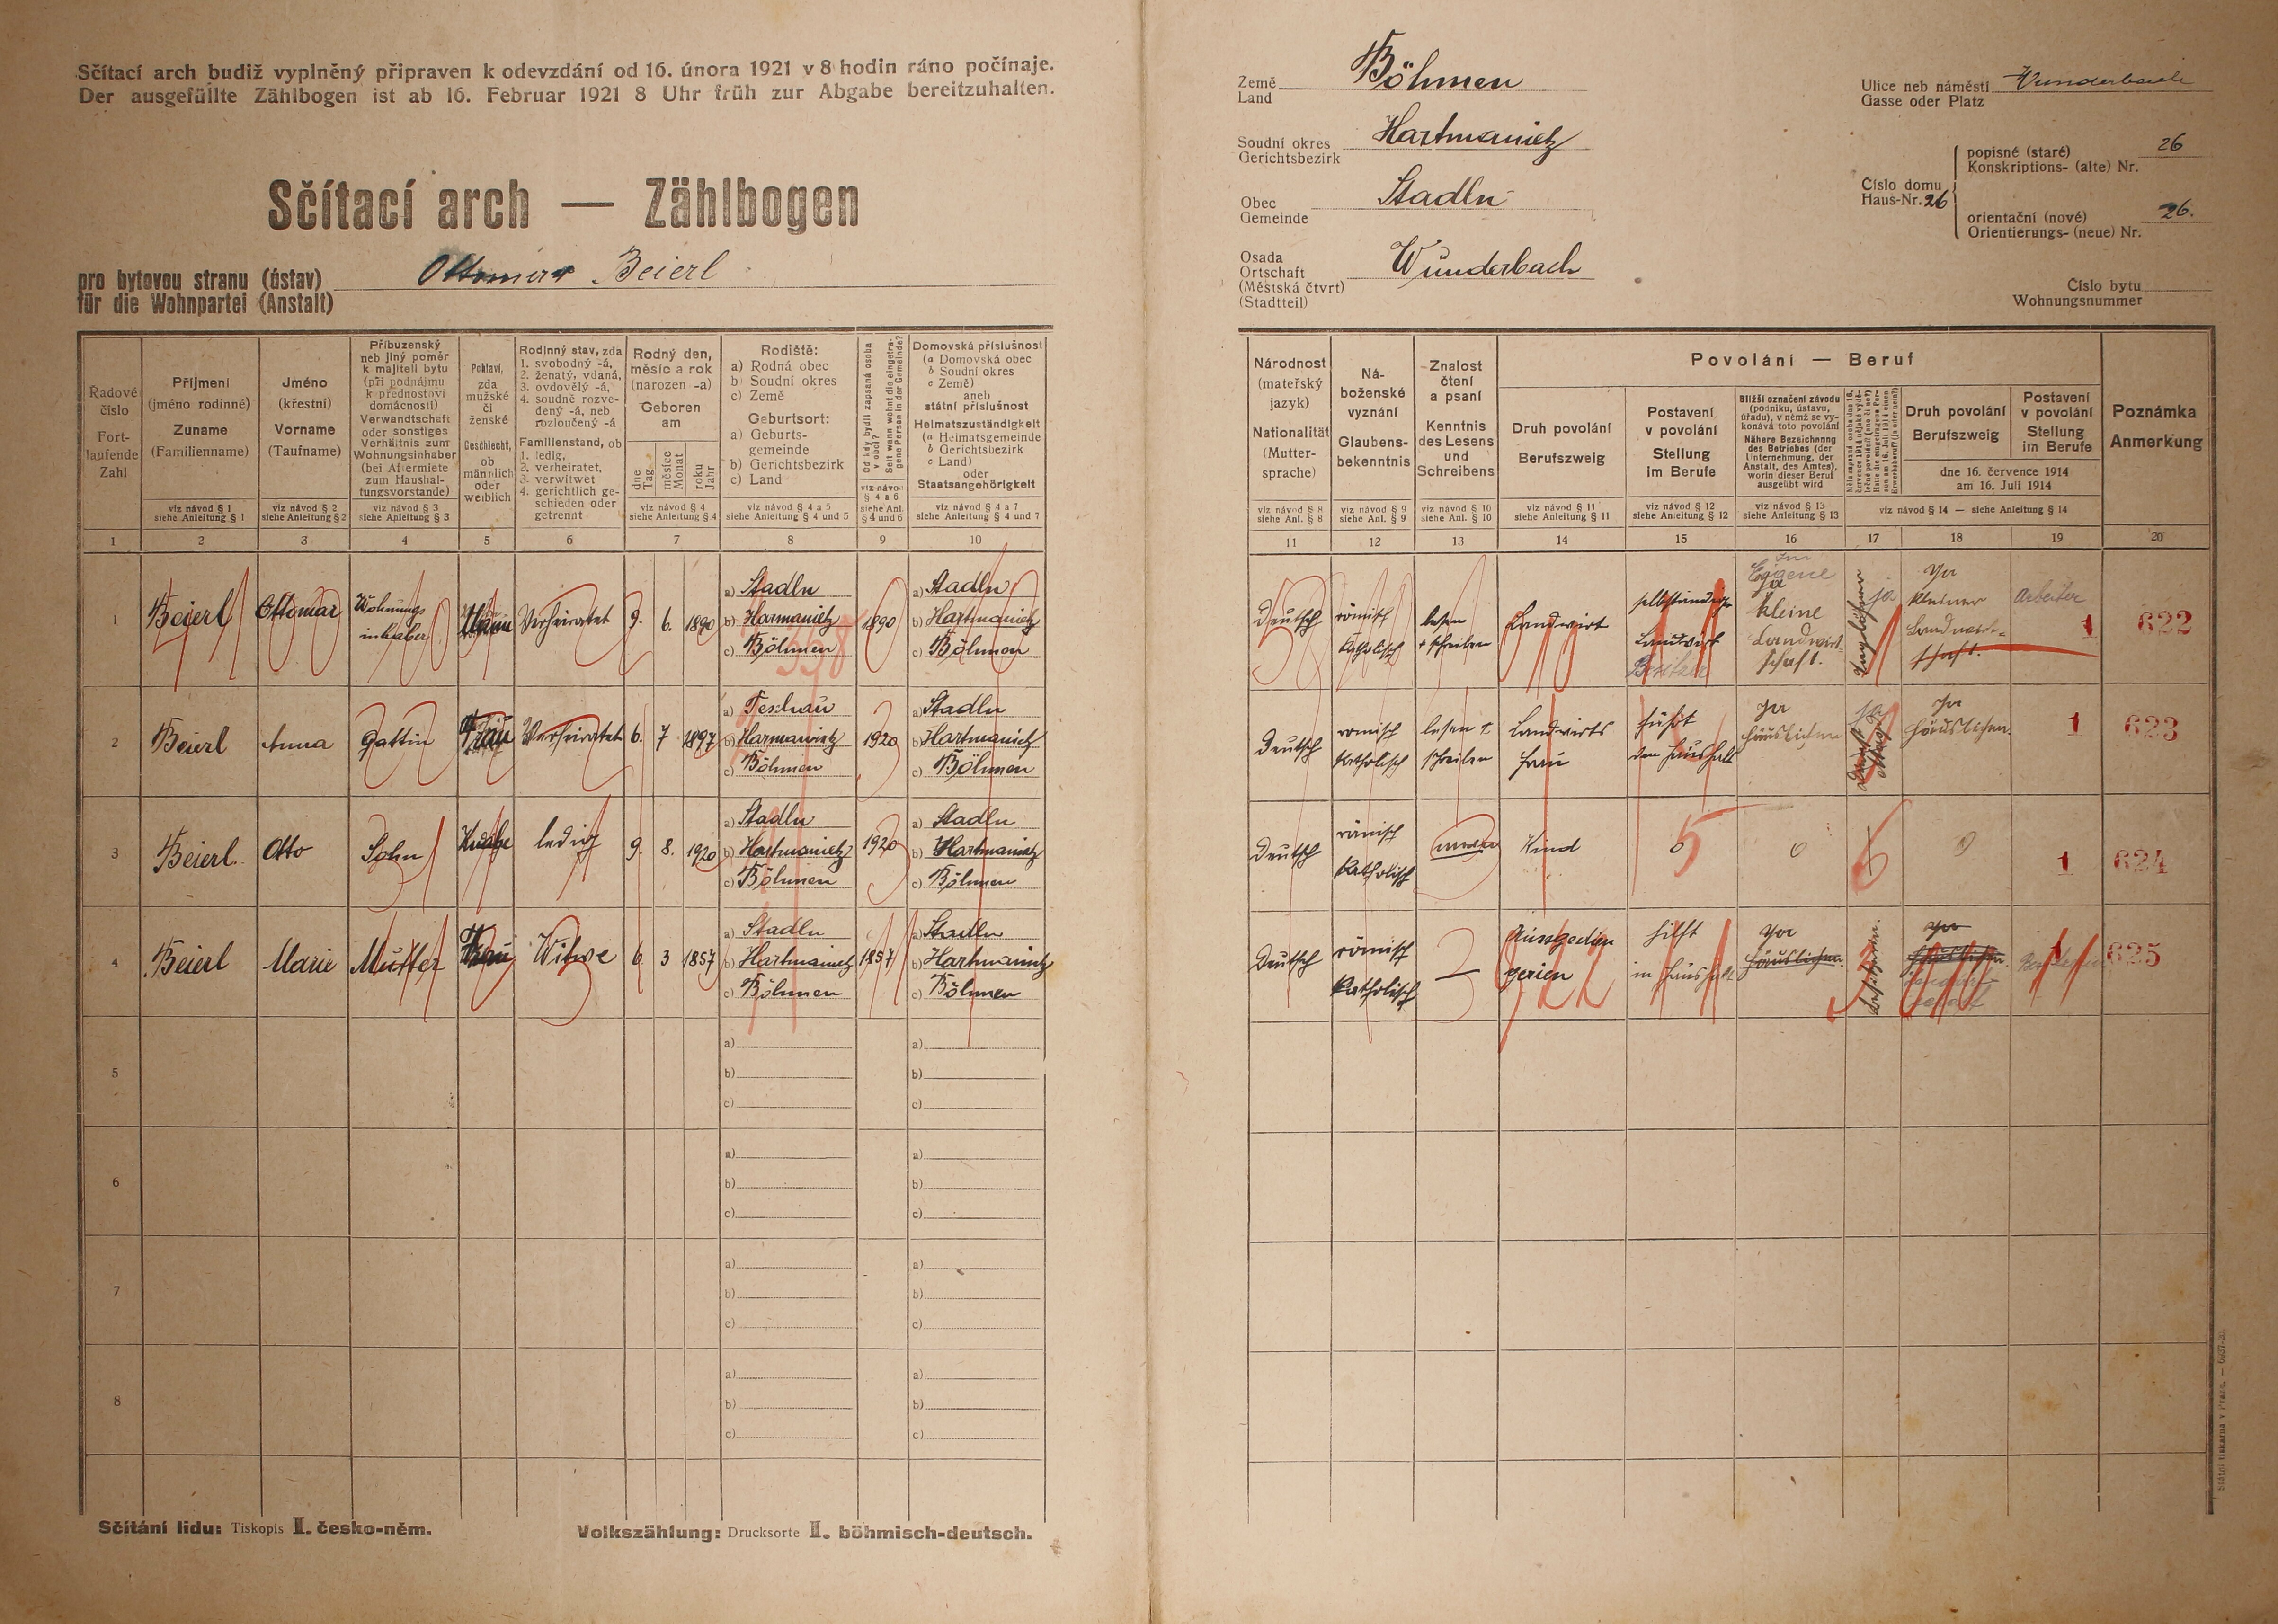 Sčítací arch budiž vyplněný připraven k odevzdání od 16. února 1921 v 8 hodin ráno počínaje.
Der ausgefüllte Zählbogen ist ab 16. Februar 1921 8 Uhr früh zur Abgabe bereitzuhalten.
Sčítací arch — Zählbogen
pro bytovou stranu (ústav)
für die Wohnpartei (Anstalt)
Ottomar Beierl
Řadové číslo
Fortlaufende Zahl
Příjmení
(jméno rodinné)
Zuname
(Familienname)
viz návod § 1
siehe Anleitung § 1
Jméno
(křestní)
Vorname
(Taufname)
viz návod § 2
siehe Anleitung § 2
Příbuzenský
neb jiný poměr
k majiteli bytu
(při podnájmu
k přednostovi
domácnosti)
Verwandtschaft
oder sonstiges
Verhältnis zum
Wohnungsinhaber
(bei Aftermiete
zum Haushal-
tungsvorstande)
viz návod § 3
siehe Anleitung § 3
Pohlaví,
zda
mužské
či
ženské
Geschlecht,
ob
männlich
oder
weiblich
Rodinný stav, zda
1. svobodný -á,
2. ženatý, vdaná,
3. ovdovělý -á,
4. soudně rozve-
dený -á, neb
rozloučený -á
Familienstand, ob
1. ledig,
2. verheiratet,
3. verwitwet
4. gerichtlich ge-
schieden oder
getrennt
Rodný den,
měsíc a rok
(narozen -a)
Geboren
am
dne
Tag
měsíce
Monat
roku
Jahr
viz návod § 4
siehe Anleitung § 4
Rodiště:
a) Rodná obec
b) Soudní okres
c) Země
Geburtsort:
a) Geburts-
gemeinde
b) Gerichtsbezirk
c) Land
viz návod § 4 a 5
siehe Anleitung § 4 und 5
Od kdy bydlí zapsaná osoba
v obci?
Seit wann wohnt die eingetra-
gene Person in der Gemeinde?
viz návod
§ 4 a 6
siehe Anl.
§ 4 und 6
Domovská příslušnost
(a Domovská obec
b Soudní okres
c Země)
aneb
státní příslušnost
Heimatszuständigkeit
(a Heimatsgemeinde
b Gerichtsbezirk
c Land)
oder
Staatsangehörigkeit
viz návod § 4 a 7
siehe Anleitung § 4 und 7
1 2 3 4 5 6 7 8 9 10
1 Beierl Ottomar Wohnungs inhaber Mann Verheiratet 9. 6. 1890 a) Stadln b) Harmanietz c) Böhmen 1890 a) Stadln b) Hartmanietz c) Böhmen
2 Beierl Anna Gattin Frau Verheiratet 6. 7 1897 a) Teschau b) Harmanietz c) Böhmen 1920 a) Stadln b) Hartmanietz c) Böhmen
3 Beierl Otto Sohn Knabe ledig 9. 8. 1920 a) Stadln b) Hartmanietz c) Böhmen 1920 a) Stadln b) Hartmanietz c) Böhmen
4 Beierl Marie Mutter Frau Witwe 6 3 1857 a) Stadln b) Hartmanietz c) Böhmen 1857 a) Stadln b) Hartmanietz c) Böhmen
5 a) b) c) a) b) c)
6 a) b) c) a) b) c)
7 a) b) c) a) b) c)
8 a) b) c) a) b) c)
Sčítání lidu: Tiskopis II. česko-něm.
Volkszählung: Drucksorte II. böhmisch-deutsch.
Země
Land
Böhmen
Soudní okres
Gerichtsbezirk
Hartmanietz
Obec
Gemeinde
Stadln
Osada
Ortschaft
(Městská čtvrt)
(Stadtteil)
Wunderbach
Ulice neb náměstí
Gasse oder Platz
Wunderbach
Číslo domu
Haus-Nr. 26
popisné (staré)
Konskriptions- (alte) Nr.
26
orientační (nové)
Orientierungs- (neue) Nr.
26.
Číslo bytu
Wohnungsnummer
Národnost
(mateřský
jazyk)
Nationalität
(Mutter-
sprache)
viz návod § 8
siehe Anl. § 8
Ná-
boženské
vyznání
Glaubens-
bekenntnis
viz návod § 9
siehe Anl. § 9
Znalost
čtení
a psaní
Kenntnis
des Lesens
und
Schreibens
viz návod § 10
siehe Anl. § 10
Povolání — Beruf
Druh povolání
Berufszweig
viz návod § 11
siehe Anleitung § 11
Postavení
v povolání
Stellung
im Berufe
viz návod § 12
siehe Anleitung § 12
Bližší označení závodu
(podniku, ústavu,
úřadu), v němž se vy-
konává toto povolání
Nähere Bezeichnung
des Betriebes (der
Unternehmung, der
Anstalt, des Amtes),
worin dieser Beruf
ausgeübt wird
viz návod § 13
siehe Anleitung § 13
Druh povolání
Berufszweig
Postavení
v povolání
Stellung
im Berufe
dne 16. července 1914
am 16. Juli 1914
viz návod § 14 — siehe Anleitung § 14
Poznámka
Anmerkung
11 12 13 14 15 16 17 18 19 20
Deutsch römisch Katholisch lesen + schreiben Landwirt selbständiger Landwirt Besitzer Eigene ja kleine Landwirt schaft. Taglöhner ja ja kleiner Landwirt- schaft. Arbeiter 1 622
Deutsch römisch Katholisch lesen + schreiben Landwirts frau führt den Haushalt ja häuslichen ja ja häuslichen. 1 623
Deutsch römisch Katholisch Kind 0 5 0 6 0 1 624
Deutsch römisch Katholisch — hilft in Haushalt ja häuslichen. ja häuslichen. 1 625
Státní tiskárna v Praze. — 6937-20.